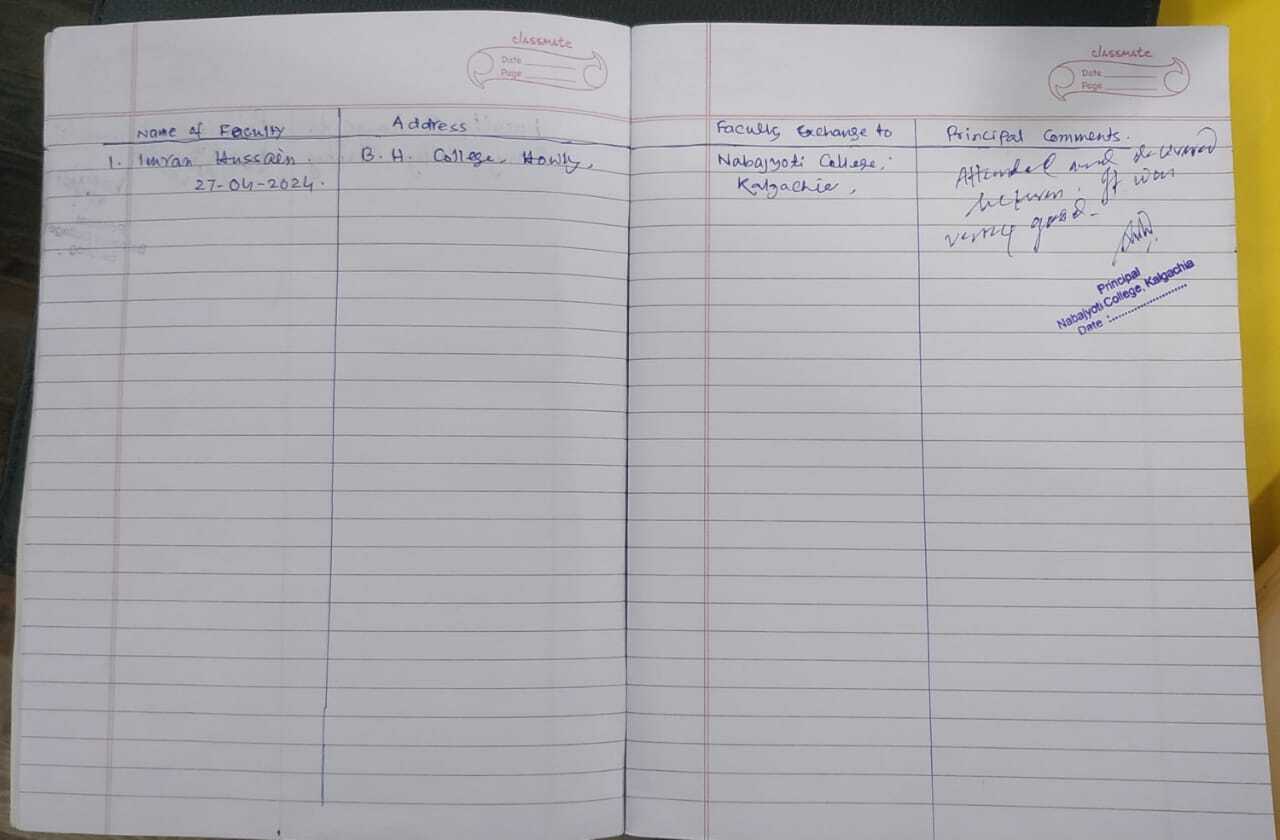 classmate
Date
Page
Name of Faculty
Address
1. Imran Hussain.
B. H. College, Howly,
27-04-2024.
classmate
Date
Page
Faculty Exchange to
Principal Comments.
Nabajyoti College,
Kalgachia,
Attended and delivered
lecture. It was
very good.
Principal
Nabajyoti College, Kalgachia
Date :....................